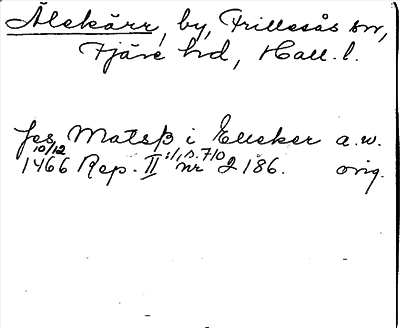 Älekärr, by, Frillesås sn,
Fjäre hd, Hall. l.
Jes Matsß i Elleker a.w.
10/12 1466 Rep. II :1, s. 710 nr 2186. orig.